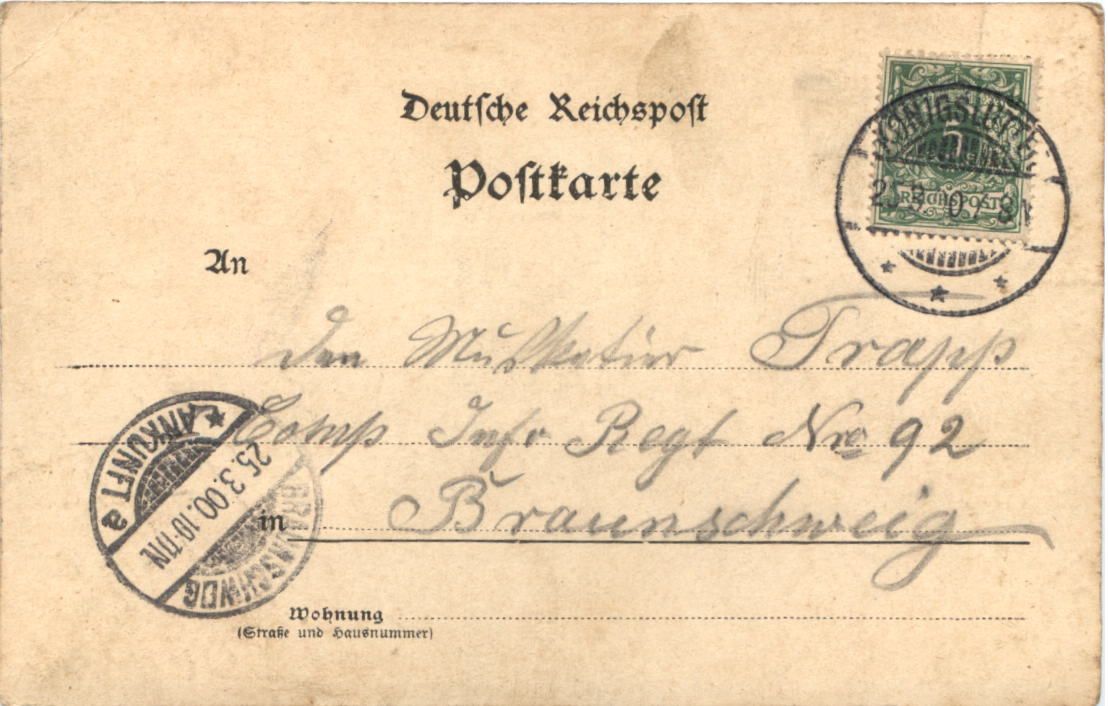 Deutsche Reichspost
Postkarte
5
REICHSPOST
KÖNIGSLUTTER
25.3.00. 7-8N
An
den Musketier Trapp
Comp Inf. Regt Nro 92
in Braunschweig
ANKUNFT
25.3.00.10-11N.
BRAUNSCHWEIG
a
Wohnung
(Straße und Hausnummer)